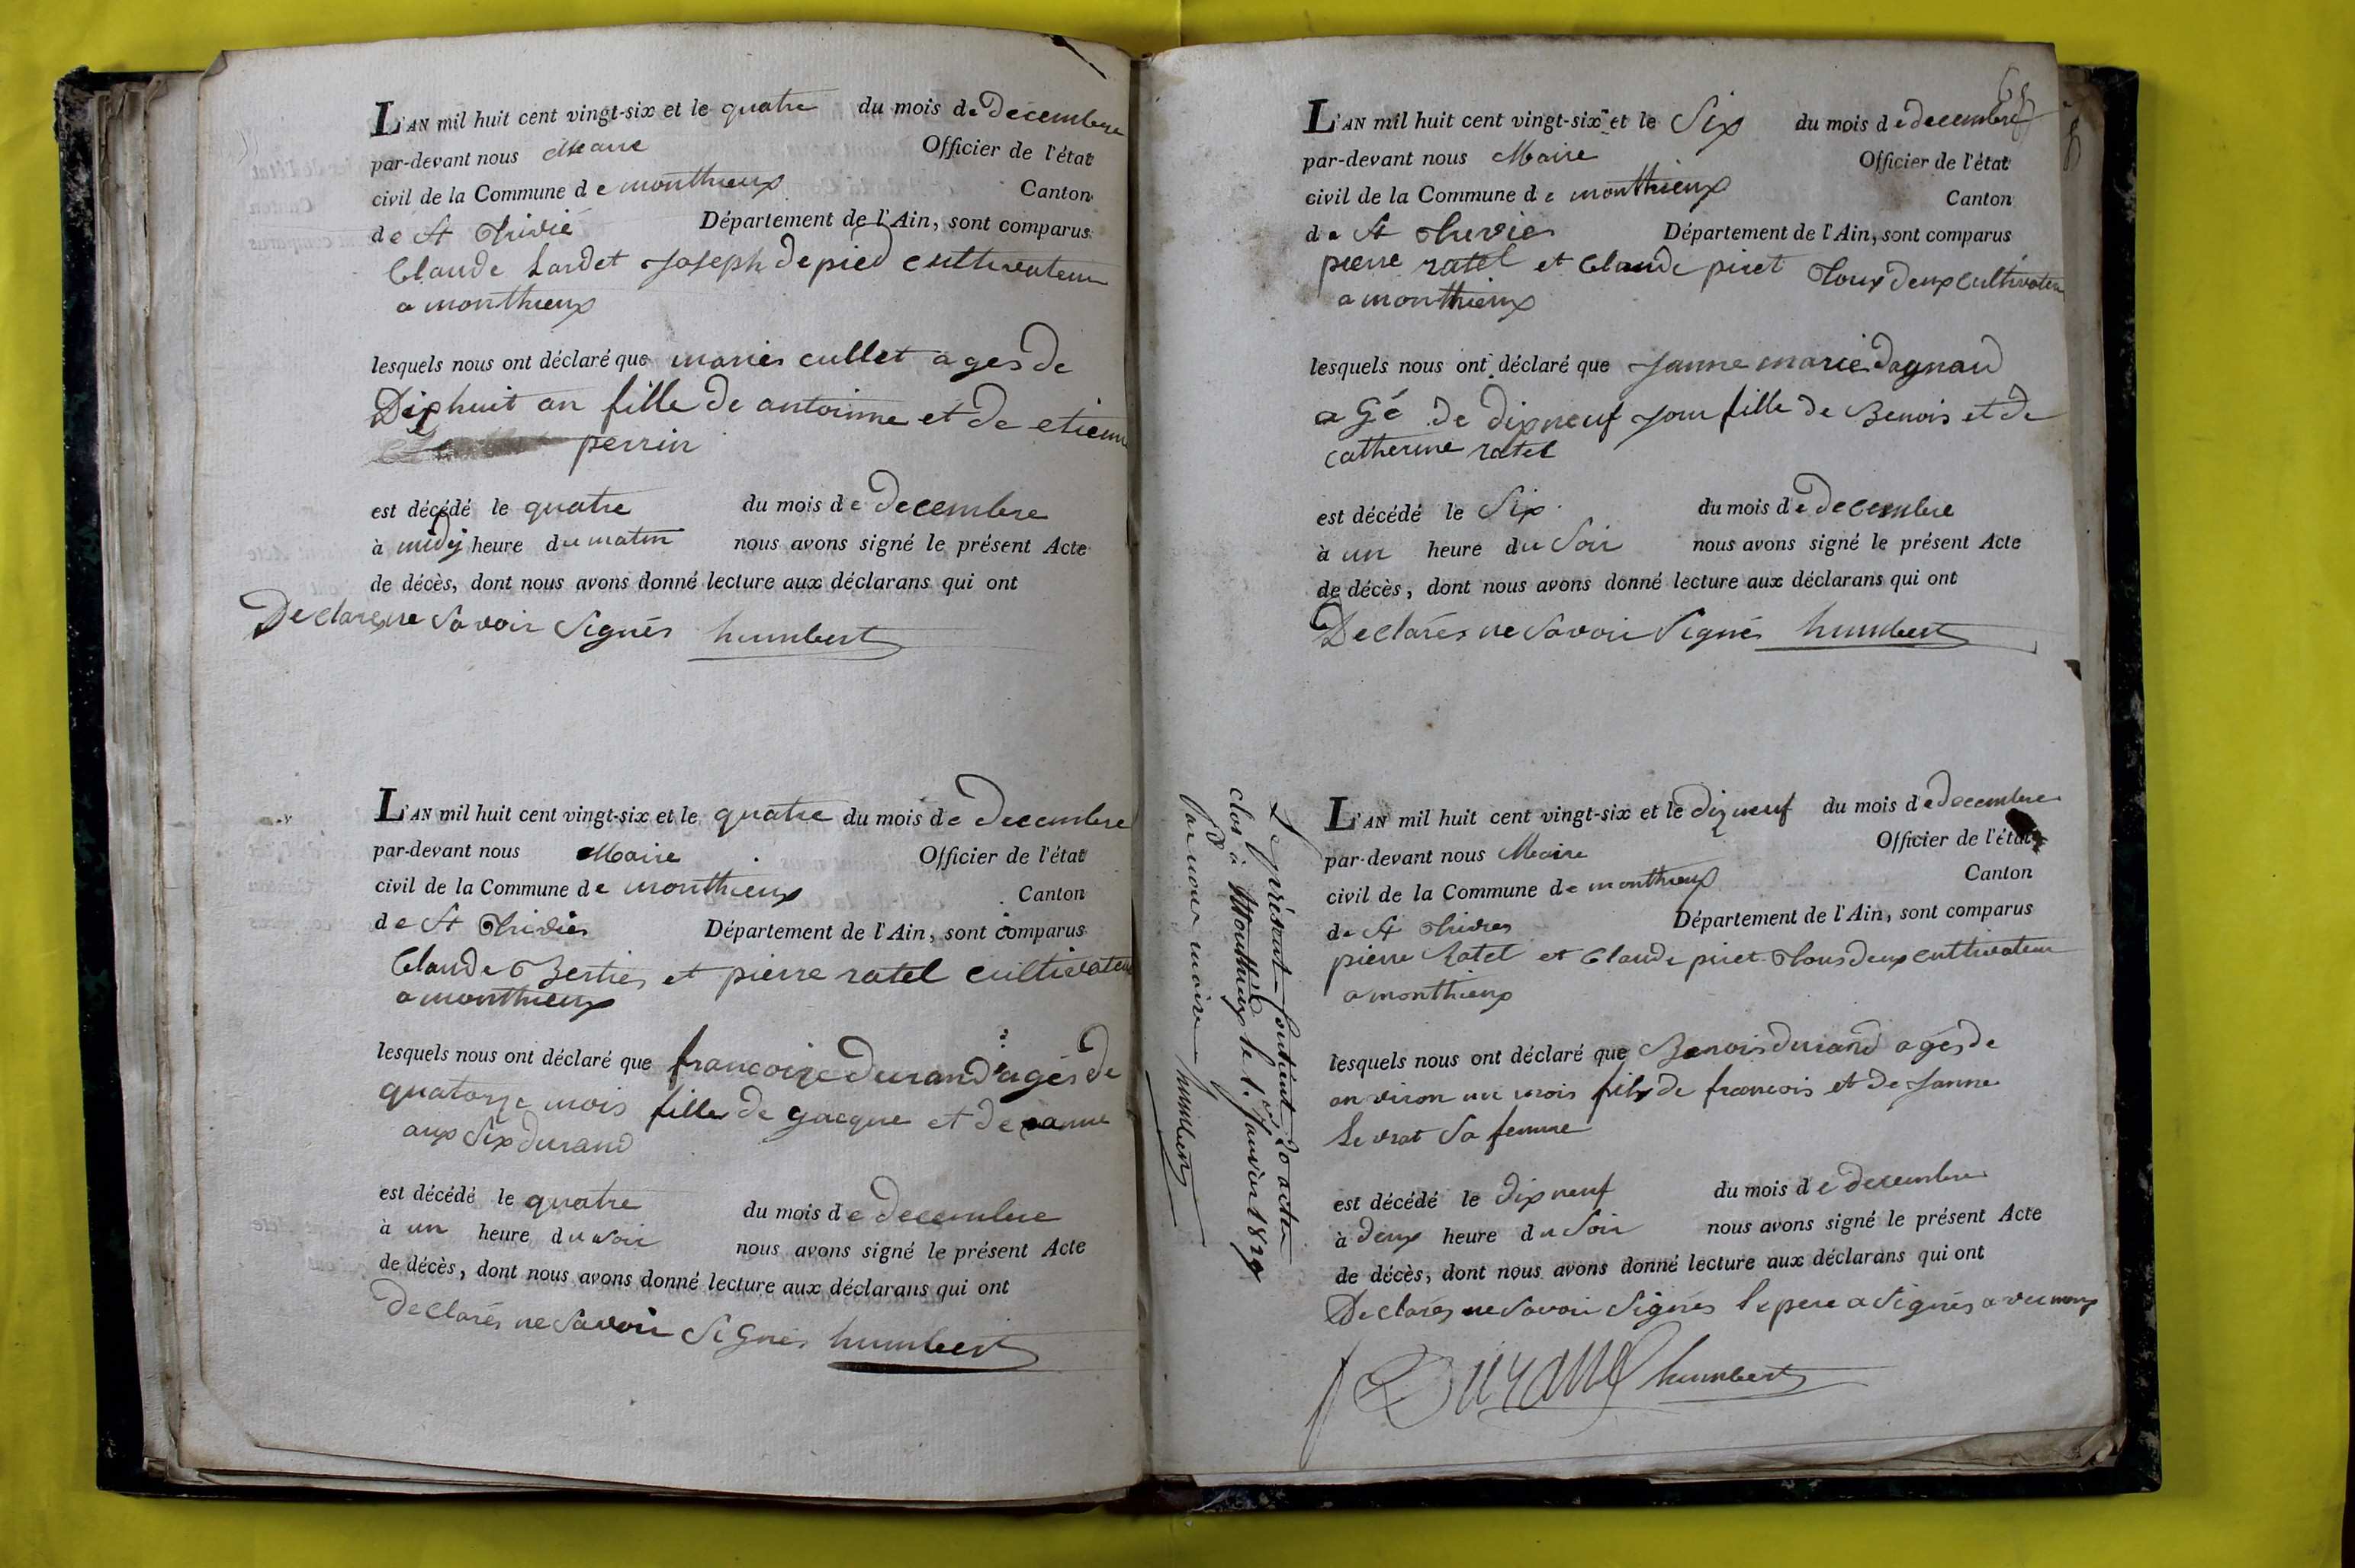 L'AN mil huit cent vingt-six et le quatre du mois de Decembre
par-devant nous Maire Officier de l'état
civil de la Commune de monthieux Canton
de St Trivié Département de l'Ain, sont comparus
Claude Lardet Joseph depied cultivateur
a monthieux
lesquels nous ont déclaré que maries cullet agés de
Dixhuit an fille de antoinne et de etienn
perrin
est décédé le quatre du mois de Decembre
à midy heure du matin nous avons signé le présent Acte
de décès, dont nous avons donné lecture aux déclarans qui ont
Declares ne Savoir Signés humbert
L'AN mil huit cent vingt-six et le quatre du mois de Decembre
par-devant nous Maire Officier de l'état
civil de la Commune de monthieux Canton
de St Triviés Département de l'Ain, sont comparus
Claude Berties et pierre ratel cultivateur
a monthieux
lesquels nous ont déclaré que francoize durand agés de
quatorze mois fille de gacque et de
durand
est décédé le quatre du mois de Decembre
à un heure du soir nous avons signé le présent Acte
de décès, dont nous avons donné lecture aux déclarans qui ont
declarés ne Savoir Signés humbert
L'AN mil huit cent vingt-six et le Six du mois de decembre
par-devant nous Maire Officier de l'état
civil de la Commune de monthieux Canton
de St Trivies Département de l'Ain, sont comparus
pierre ratel et Claude piret Tous deux Cultivateur
a monthieux
lesquels nous ont déclaré que Janne marie dagnaud
a Gé de dixneuf Jour fille de Benois et de
catherine ratel
est décédé le Six du mois de Decembre
à un heure du Soir nous avons signé le présent Acte
de décès, dont nous avons donné lecture aux déclarans qui ont
Declarés ne Savoir Signés humbert
Le présent contient 20 actes
clos à Monthieux le 1er Janvier 1827
par nous maire humbert
L'AN mil huit cent vingt-six et le dixneuf du mois de decembre
par-devant nous Maire Officier de l'état
civil de la Commune de monthieux Canton
de St Trivies Département de l'Ain, sont comparus
pierre Ratel et Claude piret Tous deux cultivateur
a monthieux
lesquels nous ont déclaré que Benois durand agés de
anviron un mois fils de francois et de Janne
Levrat Sa femme
est décédé le dixneuf du mois de decembre
à deux heure du Soir nous avons signé le présent Acte
de décès, dont nous avons donné lecture aux déclarans qui ont
Declarés ne Savoir Signés le pere a Signés avec nous
Durand humbert